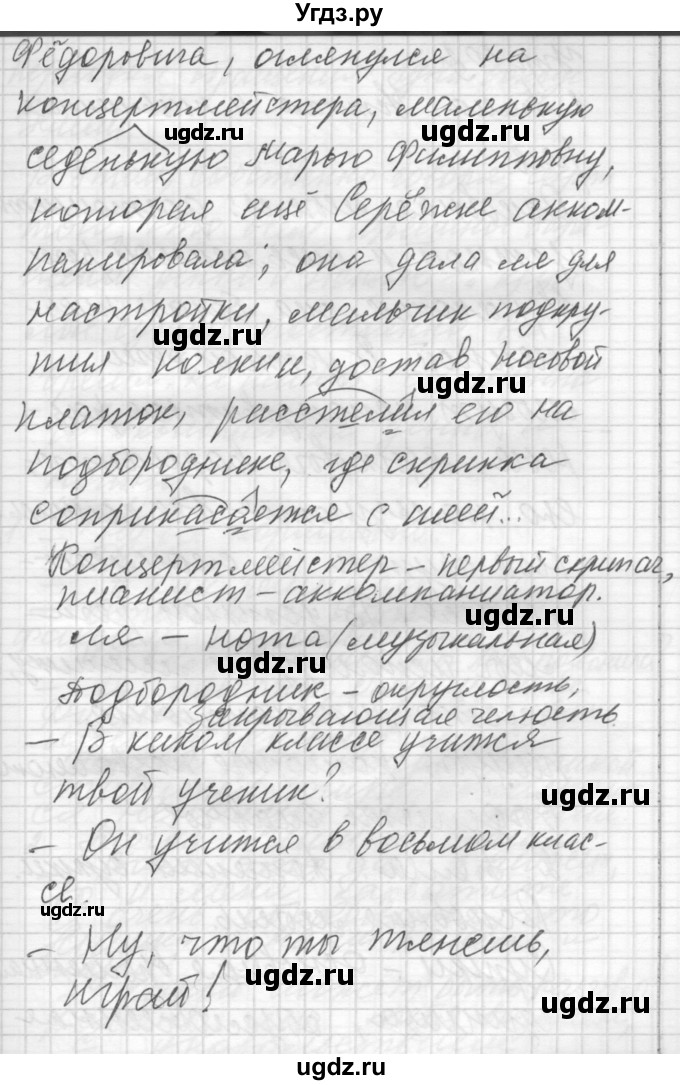 Угдз.ру
Фёдоровича, оглянулся на
концертмейстера, маленькую
ugdz.ru ugdz.ru
седенькую Марью Филипповну,
которая ещё Серёжке акком-
панировала; она дала ля для
настройки, мальчик подкру-
ugdz.ru
тил колки, достав носовой
ugdz.ru
платок, расстелил его на
подбороднике, где скрипка
соприкасается с шеей...
Концертмейстер – первый скрипач,
пианист – аккомпаниатор.
ugdz.ru
ля – нота (музыкальная)
ugdz.ru
Подбородник – округлость,
закрывающая челюсть
– В каком классе учится
ugdz.ru
твой ученик?
ugdz.ru
– Он учится в восьмом клас-
се.
ugdz.ru
– Ну, что ты тянешь,
ugdz.ru
играй!
ugdz.ru
ugdz.ru